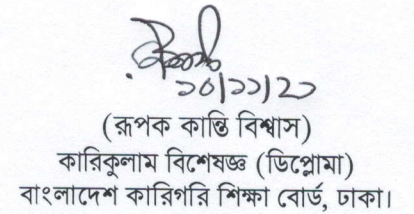 ১০/১১/২১
(রূপক কান্তি বিশ্বাস)
কারিকুলাম বিশেষজ্ঞ (ডিপ্লোমা)
বাংলাদেশ কারিগরি শিক্ষা বোর্ড, ঢাকা।